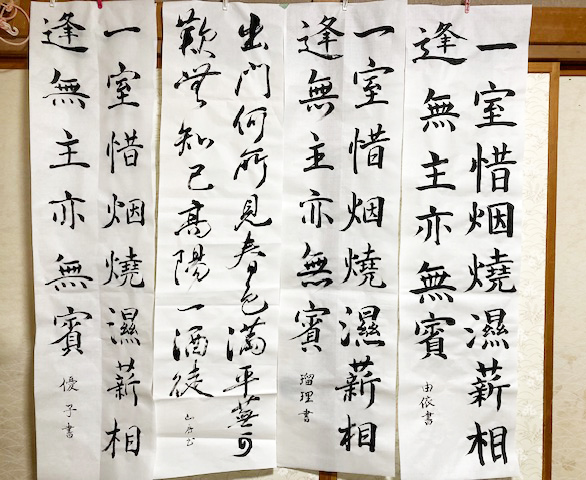 一室惜烟燒濕薪相
逢無主亦無賓
由依書
一室惜烟燒濕薪相
逢無主亦無賓
瑠理書
出門何所見春色満平蕪可
歎無知己高陽一酒徒
一室惜烟燒濕薪相
逢無主亦無賓
優子書